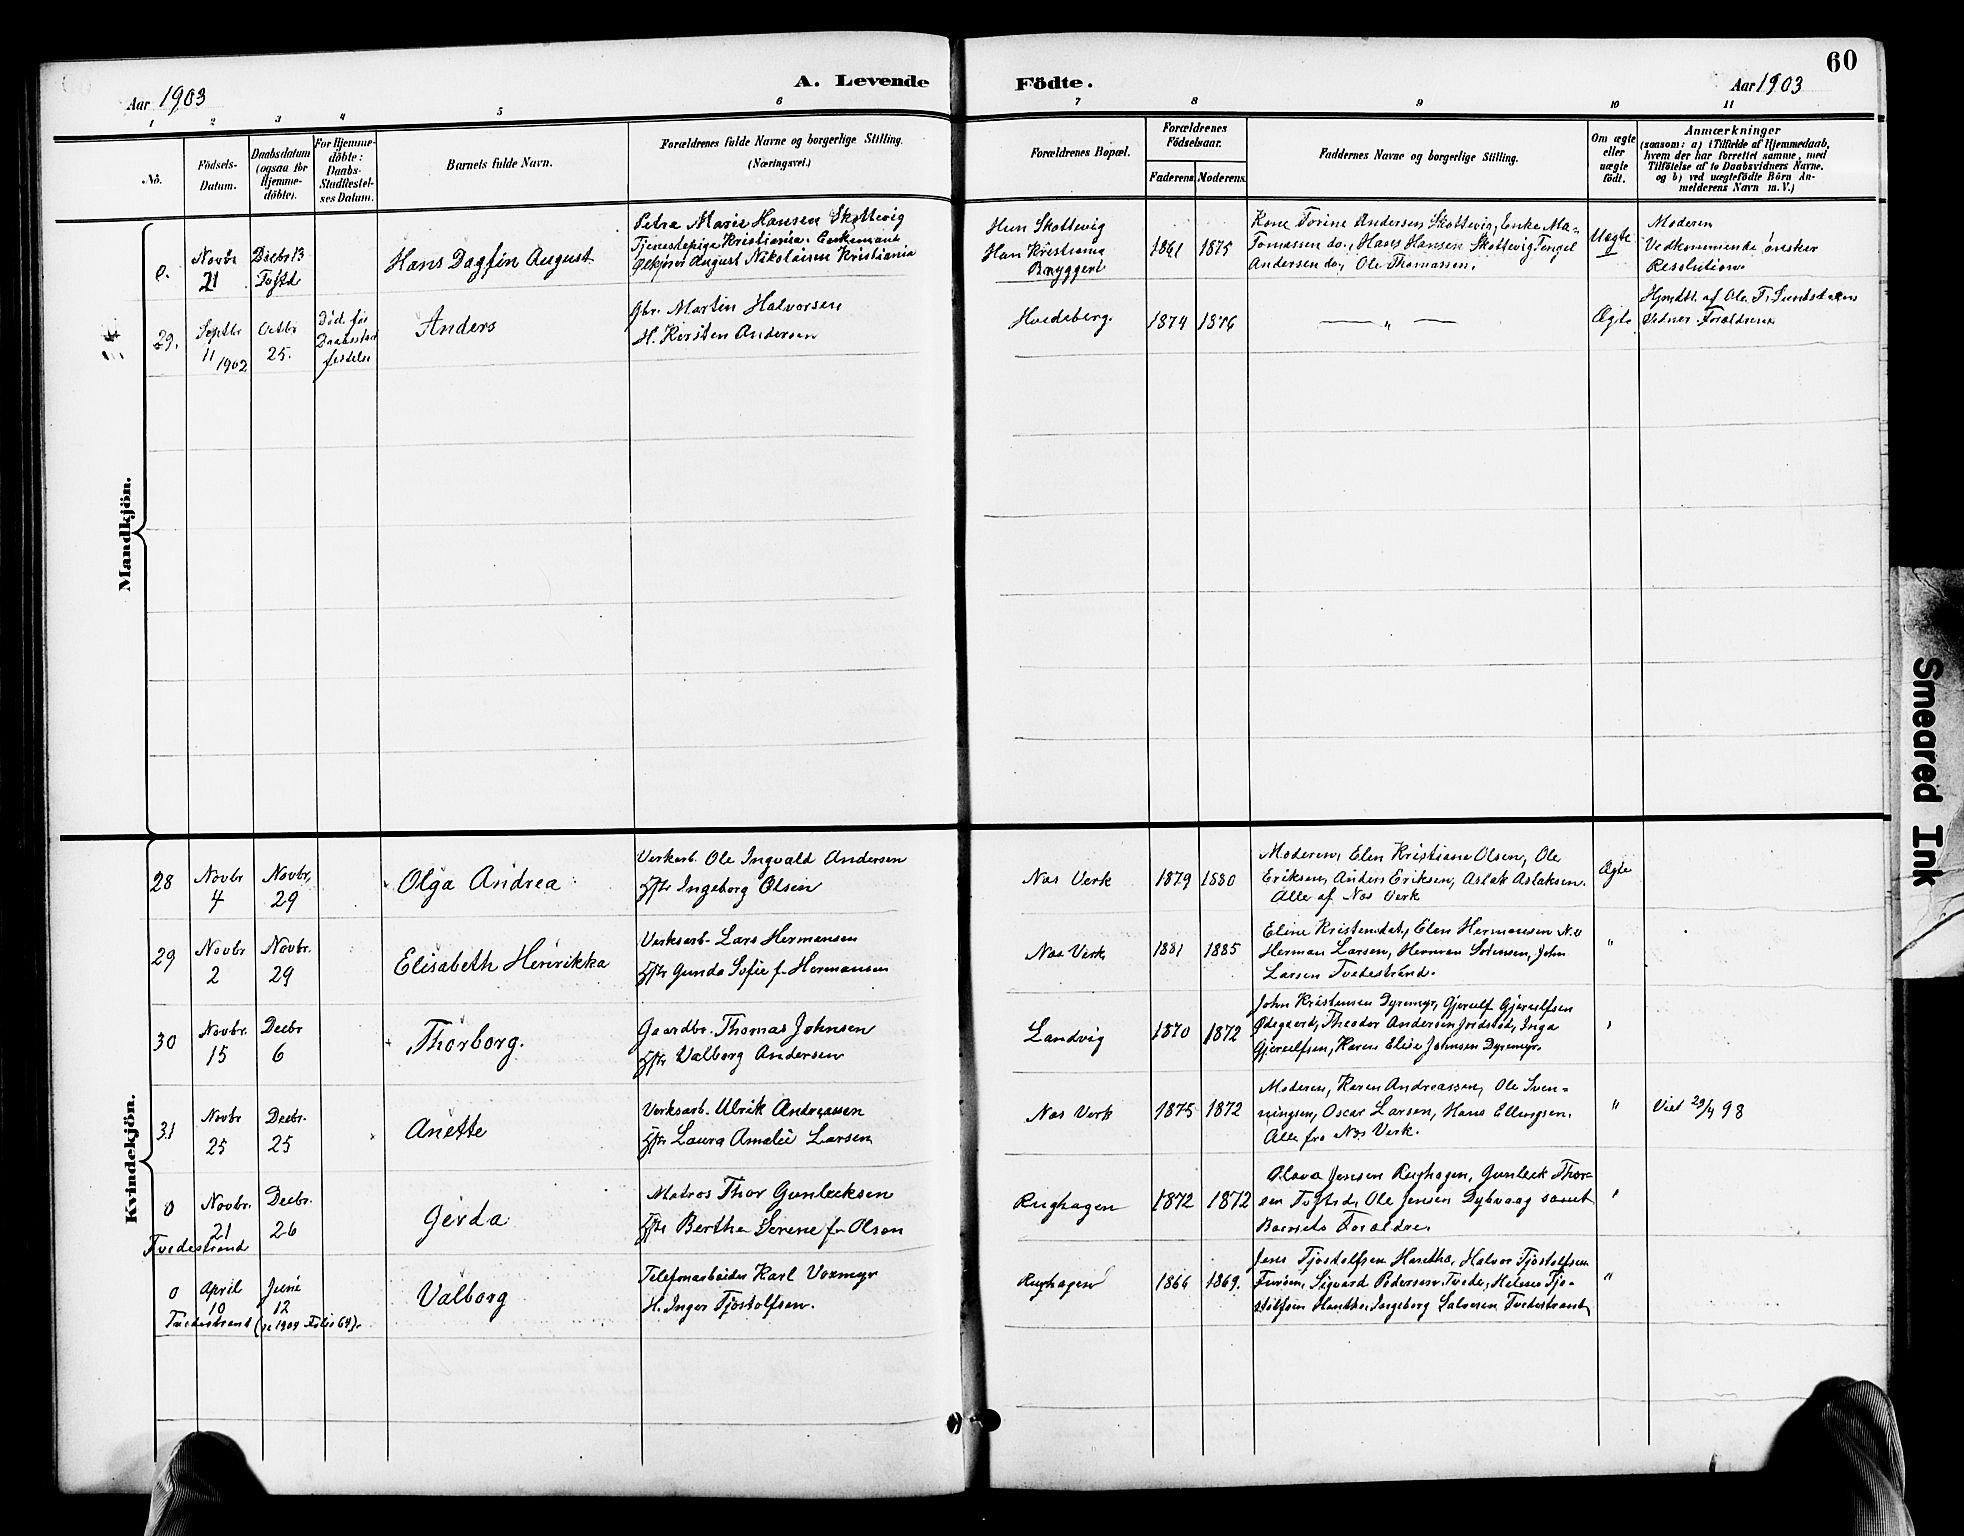 60
A. Levende Födte.
Aar 1903
Aar 1903
1 2 3 4 5 6 7 8 9 10 11
No.
Födsels-Datum.
Daabsdatum (ogsaa for Hjemme-döbte).
For Hjemme-döbte: Daabs-Stadfæstel-ses Datum.
Barnets fulde Navn.
Forældrenes fulde Navne og borgerlige Stilling. (Næringsvei.)
Forældrenes Bopæl.
Forældrenes Födselsaar.
Faderens. Moderens.
Faddernes Navne og borgerlige Stilling.
Om ægte eller uægte födt.
Anmærkninger
(saasom: a) i Tilfælde af Hjemmedaab, hvem der har forrettet samme, med Tilföielse af to Daabsvidners Navne. og b) ved uægtefödte Börn An-melderens Navn m. V.)
Mandkjön.
Novbr 21
Decbr 13 Tvstd
Hans Dagfin August
Petra Marie Hansen Skottevig
Tjenestepige Kristiania. Enkemand
Ølkjører August Nikolaisen Kristiania
Hun Skottevig
Han Kristiania
Bryggeri
1861 1875
Kone Torine Andersen Skottevig, Enke Ma-
Tomassen do., Hans Hansen Skottevig, Tengel
Andersen do., Ole Thomassen.
Uegte
Moderen
Vedkommende ønsker
Resolution.
29.
Septbr 11 1902
Octbr 25.
Død før Daabsstad festelse
Anders
Gbr. Martin Halvorsen
H. Kirsten Andersen
Hvedeberg.
1874 1876
— " —
Ægte
Hjmdbt. af Ole T. Sundsdalen
Vidner Forældrene
Kvindekjön.
28
Novbr 4
Novbr. 29
Olga Andrea
Verksarb. Ole Ingvald Andersen
Hstr Ingeborg Olsen
Nas Verk
1879 1880
Moderen, Elen Kristiane Olsen, Ole
Eriksen, Anders Eriksen, Aslak Aslaksen.
Alle af Nas Verk
Ægte
29
Novbr 2
Novbr. 29
Elisabeth Henrikka
Verksarb. Lars Hermansen
Hstr Gunda Sofie f. Hermansen
Nas Verk
1881 1885
Eline Kristensdat, Elen Hermansen N.v
Herman Larsen, Herman Sørensen, John
Larsen Tvedestrand.
"
30
Novbr. 15
Decbr 6
Thorborg.
Gaardbr. Thomas Johnsen
Hstr Valborg Andersen
Landvig
1870 1872
John Kristensen Dyremyr, Gjerulf Gjerulfsen
Ødegaard, Theodor Andersen Jordstad, Inga
Gjerulfsen, Karen Elise Johnsen Dyremyr.
"
31
Novbr 25
Decbr. 25
Anette
Verksarb. Ulrik Andreassen
Hstr Laura Amalie Larsen
Nas Verk
1875 1872
Moderen, Karen Andreassen, Ole Sven-
ningsen, Oscar Larsen, Hans Ellingsen.
Alle fra Nas Verk.
"
Viet 29/4 98
0
Novbr. 21
Decbr. 26
Tvedestrand
Gerda
Matros Thor Gunlecksen
Hstr Berthe Serene f. Olsen
Rughagen
1872 1872
Olava Jensen Rughagen, Gunleck Thor-
sen Tvstrd, Ole Jensen Dybvaag samt
Barnets Forældre.
"
0
April 10
Juni 12
Tvedestrand (se 1904 Folio 64).
Valborg
Telefonarbeider Karl Voxmyr
H. Inger Tjøstolfsen.
Rughagen
1866 1869.
Jens Tjøstolfsen Hantho, Halvor Tjøstolfsen
Furøen, Sigvard Pedersen Tvede, Helene Tjø-
stolfsen Hantho, Ingeborg Salvesen Tvedestrand
"
Smeared Ink